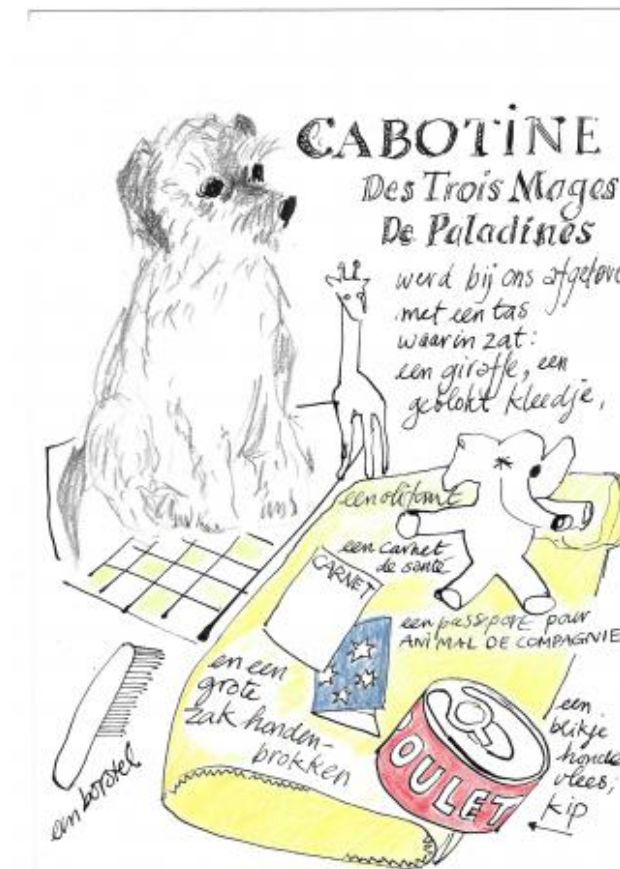 CABOTINE
Des Trois Mages
De Paladines
werd bij ons afgelove
met een tas
waarin zat:
een giraffe, een
geblokt kleedje,
een olifant
een carnet
de santé
CARNET
een passport pour
ANIMAL DE COMPAGNIE
en een
grote
zak honden-
brokken
een borstel
OULET
een
blikje
honde
vlees,
kip